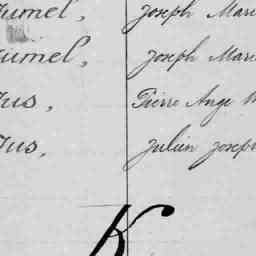 Jumel, Joseph Mari
Jumel, Joseph Mari
Jus, Pierre Ange
Jus, Julien Joseph
K